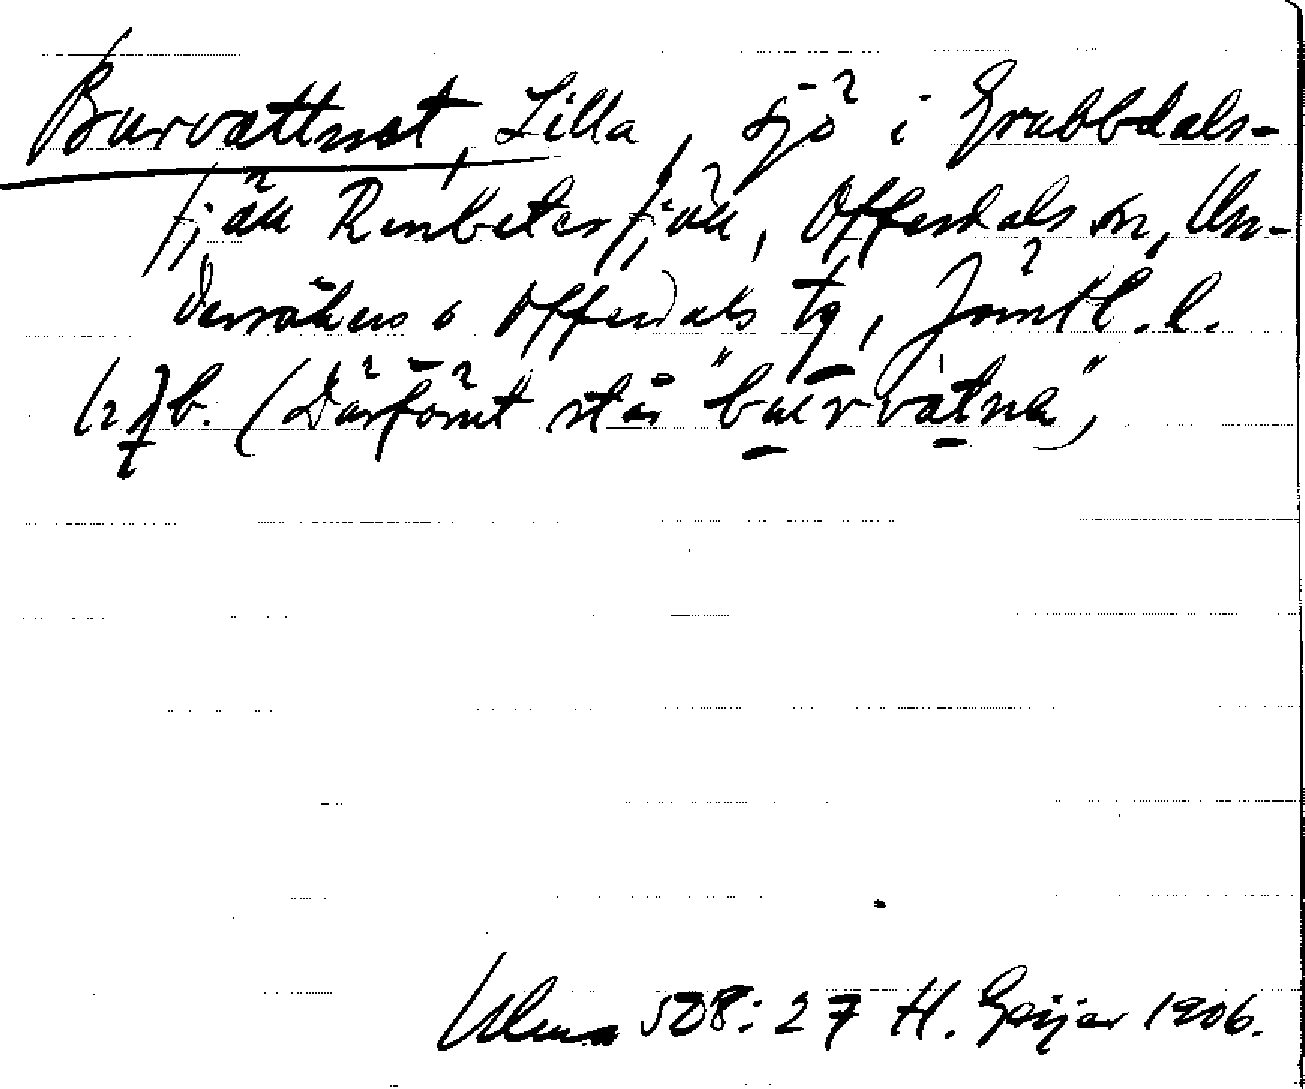 Burvattnet, Lilla, sjö i Grubbdals-
fjäll Renbetesfjäll, Offerdals sn, Un-
dersåkers o Offerdals tg, Jämtl. l.
b. (Därjämt står "burvatna",
Ulma 508:27 H. Geijer 1906.